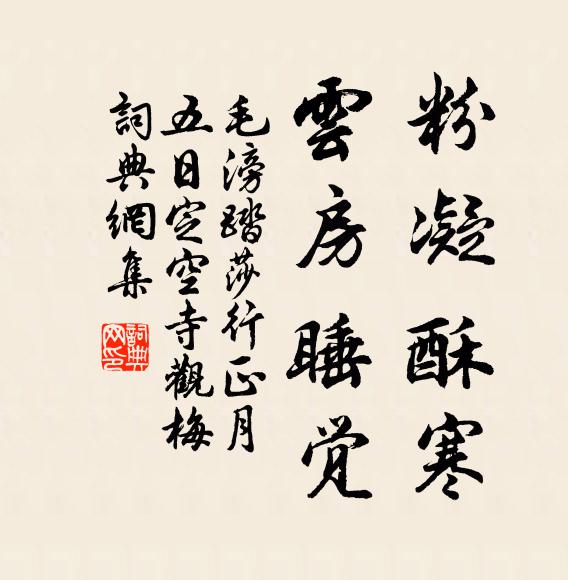 粉凝酥寒
雲房睡觉
毛滂踏莎行正月
五日定空寺觀梅
詞典網集
詞典網印